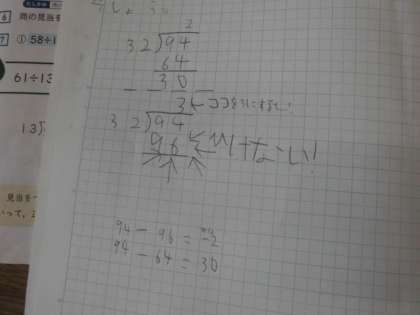 6 商の見当を
7 ① 58÷1
61÷13
13)
見当をつ
いって、
2
32)94
64
30
3 ←ココを
32)94
96 ←ひけなーい!
94 - 96 = -2
94 - 64 = 30